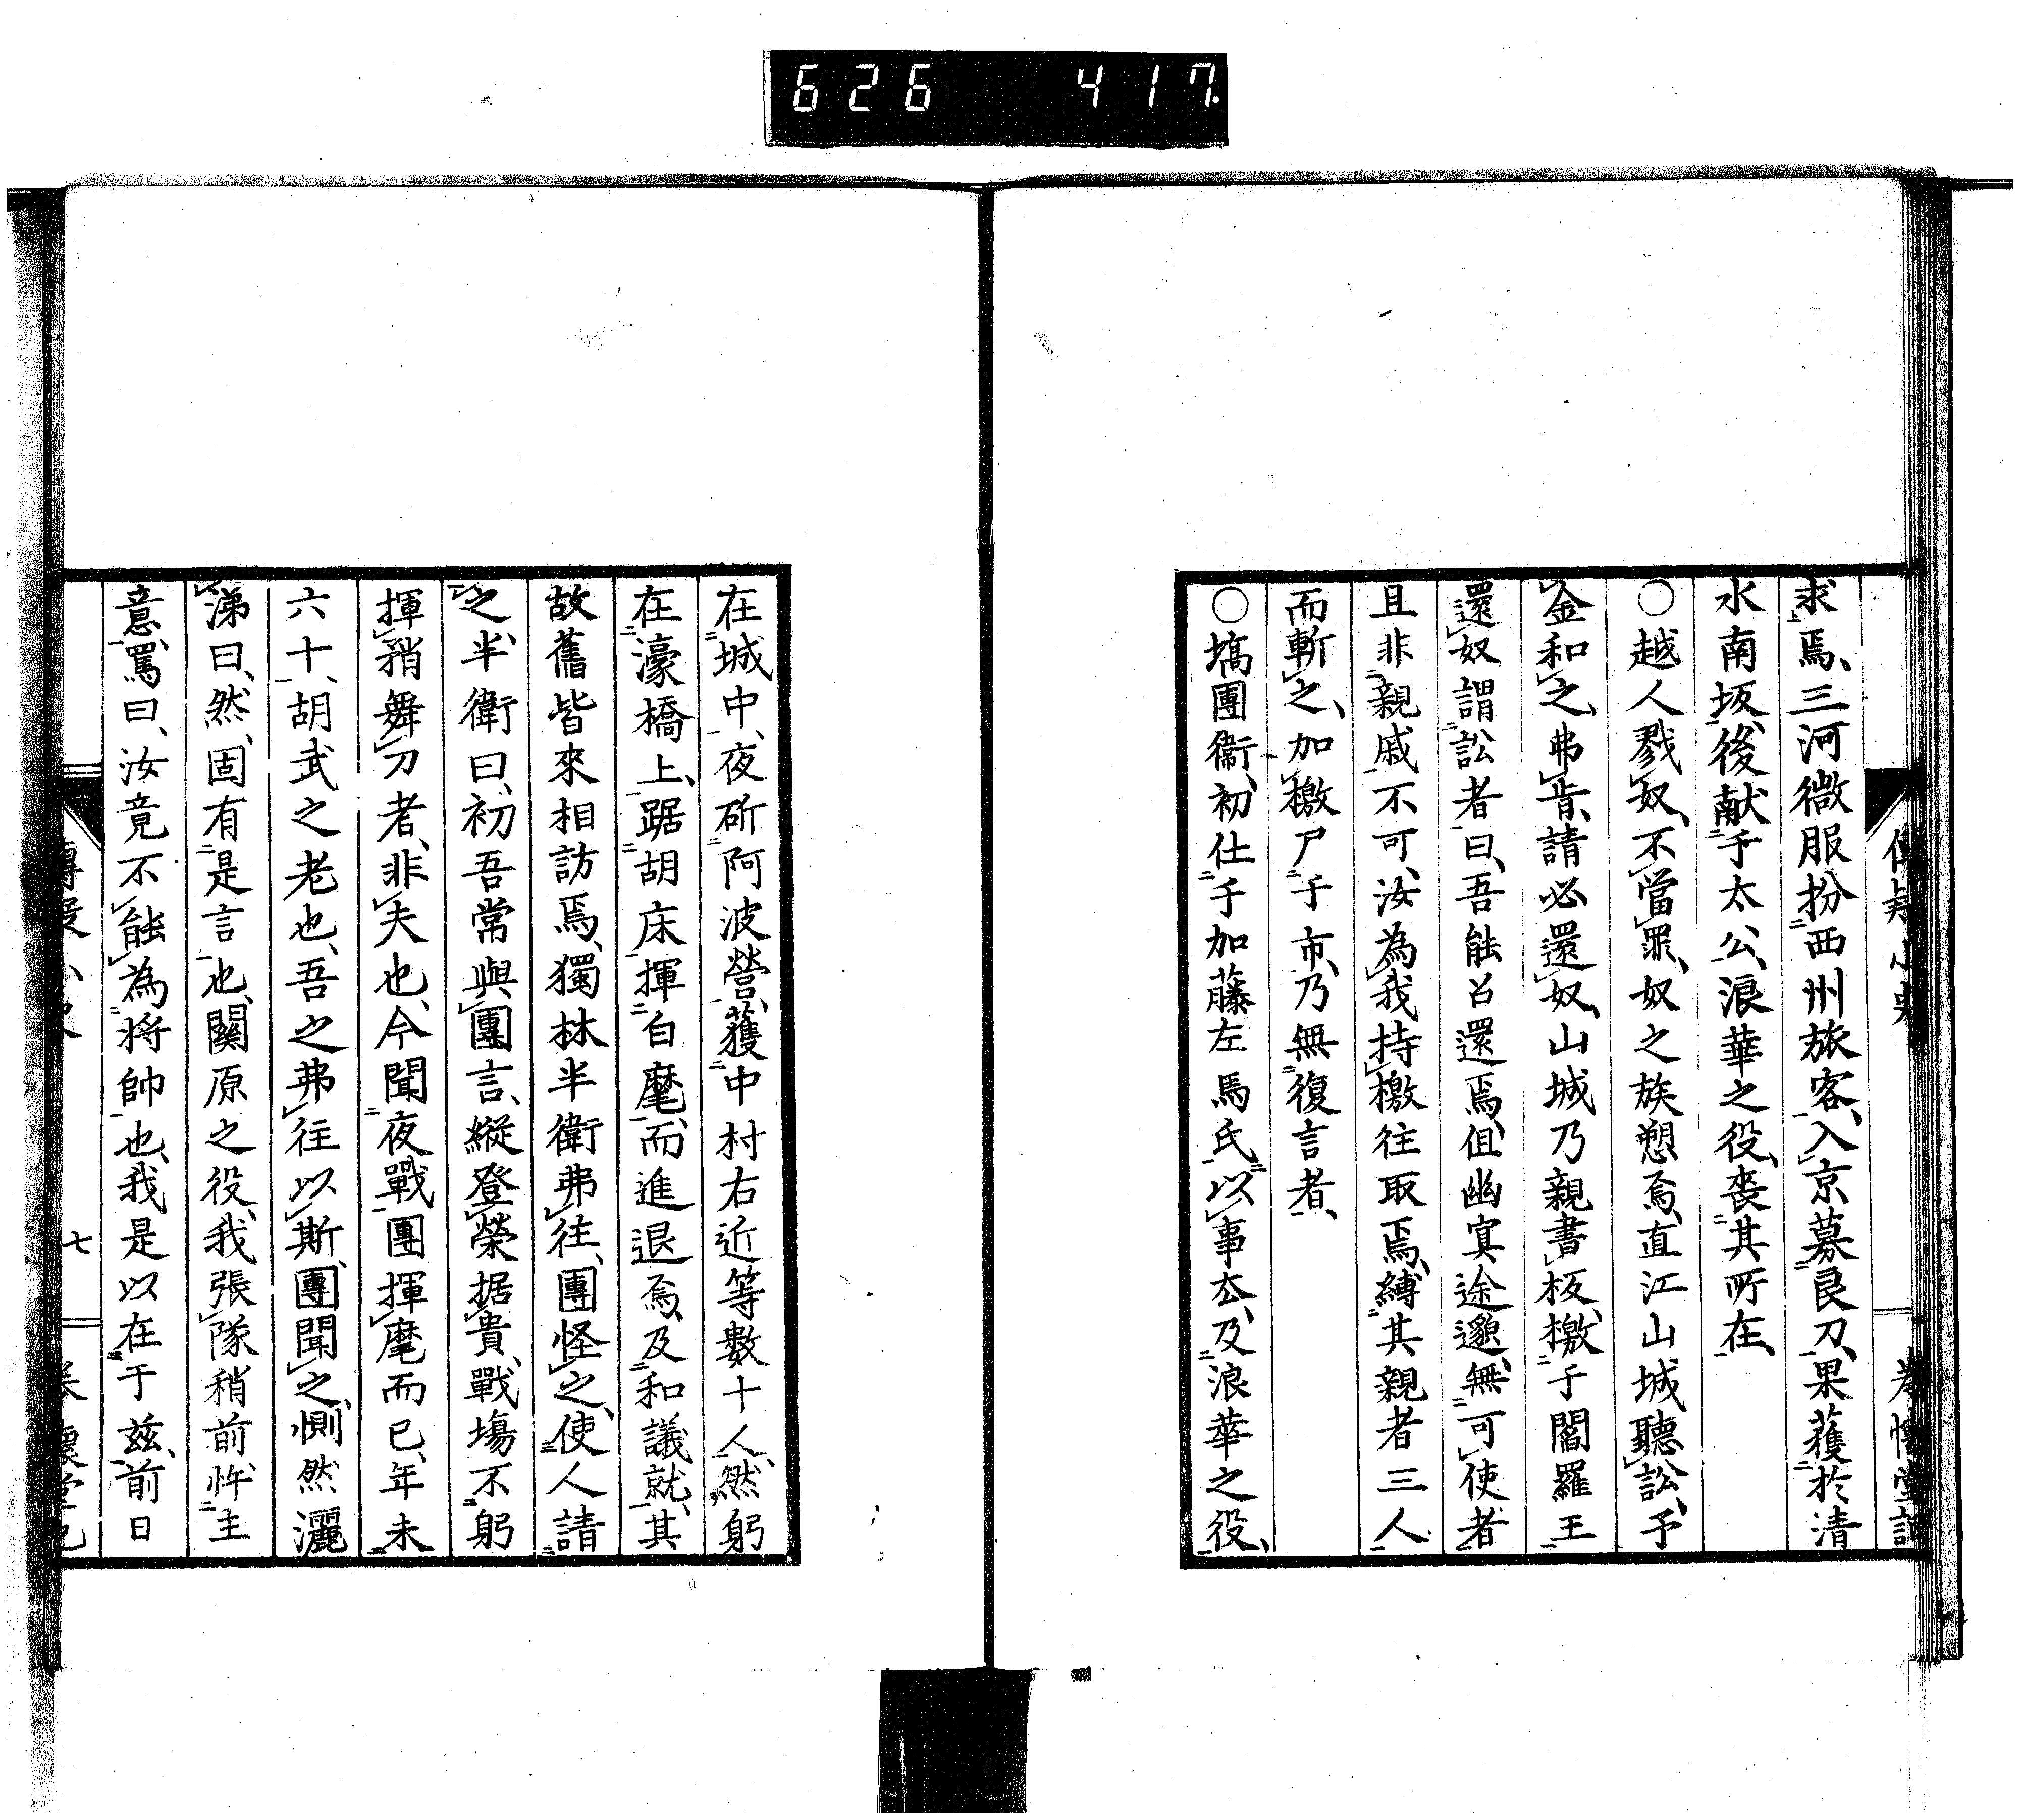 626 417
求焉、三河微服扮西州旅客、入京募良刀、果獲於清
水南坂、後献于太公、浪華之役、喪其所在、
○越人戮奴、不當罪、奴之族愬焉、直江山城聽訟、予
金和之、弗肯、請必還奴、山城乃親書板、檄于閻羅王
還奴謂訟者曰、吾能召還焉、但幽冥途邈、無可使者
且非親戚不可、汝為我持檄往取焉、縛其親者三人
而斬之、加檄尸于市、乃無復言者、
○塙團衞、初仕于加藤左馬氏、以事厺、及浪華之役、
在城中、夜斫阿波營、獲中村右近等數十人、然躬
在濠橋上、踞胡床揮白麾、而進退焉、及和議就、其
故舊皆來相訪焉、獨林半衛弗往、團怪之、使人請
之、半衛曰、初吾常與團言、縱登榮据貴、戰場不躬
揮矟舞刀者、非夫也、今聞夜戰團揮麾而已、年未
六十、胡武之老也、吾之弗往以斯、團聞之、惻然灑
涕曰、然、固有是言也、關原之役、我張隊稍前、忤主
意、罵曰、汝竟不能為将帥也、我是以在于兹、前日
七